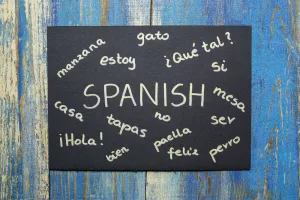 gato
manzana
estoy
¿Qué tal?
Sí
SPANISH
mesa
casa
tapas
no
ser
¡Hola!
paella
perro
bien
feliz